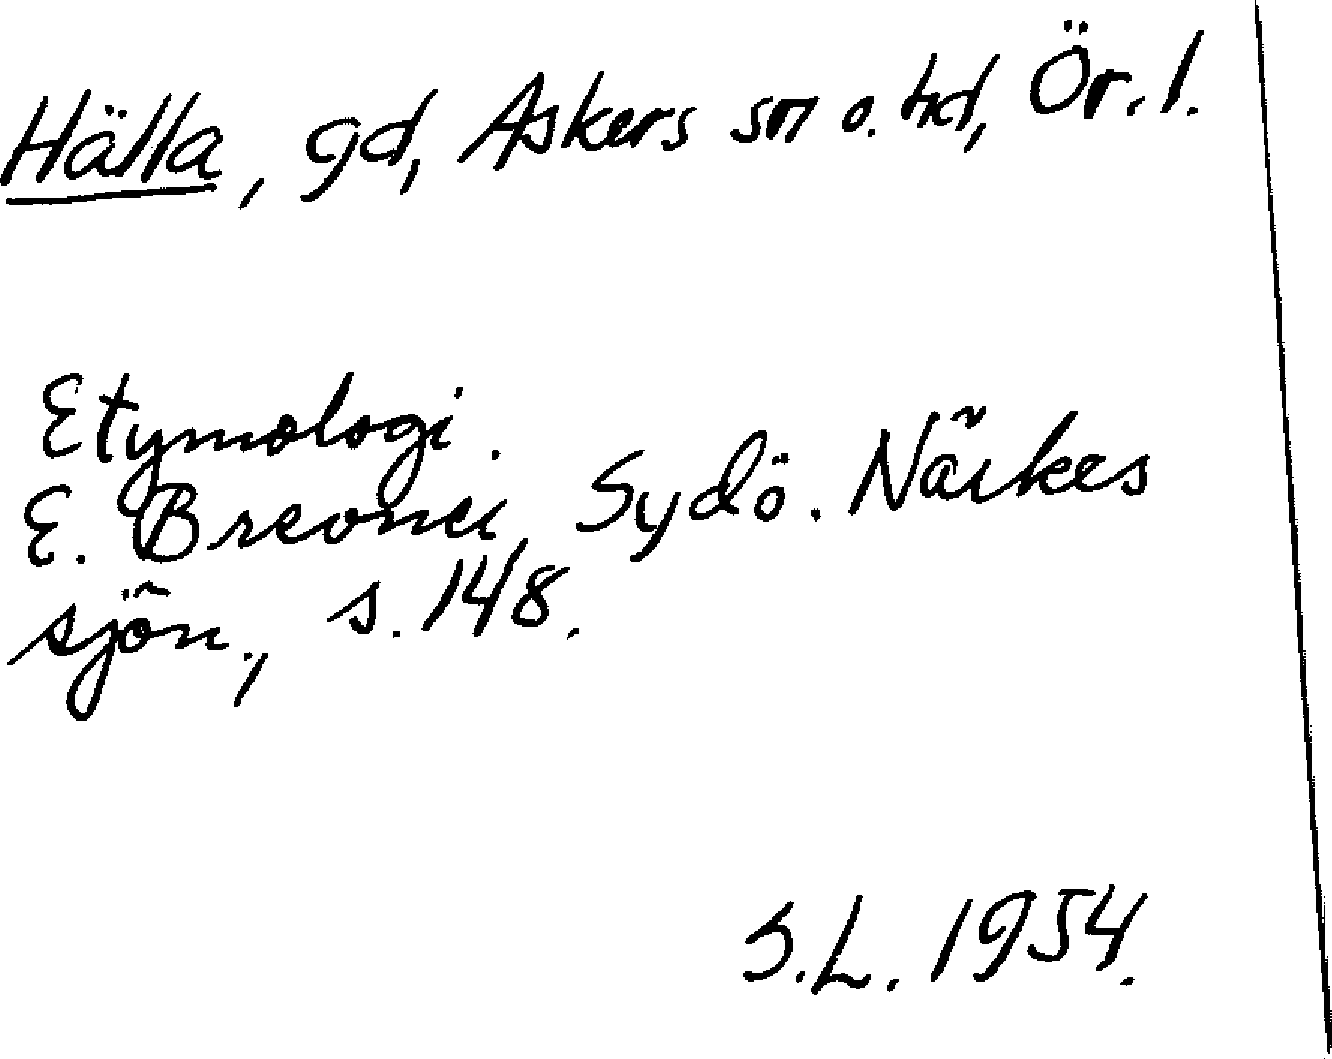 Hälla, gd, Askers sn o. hd, Ör. l.
Etymologi.
E. Brevner, Sydö. Närkes
sjön., s. 148.
S.L. 1954.